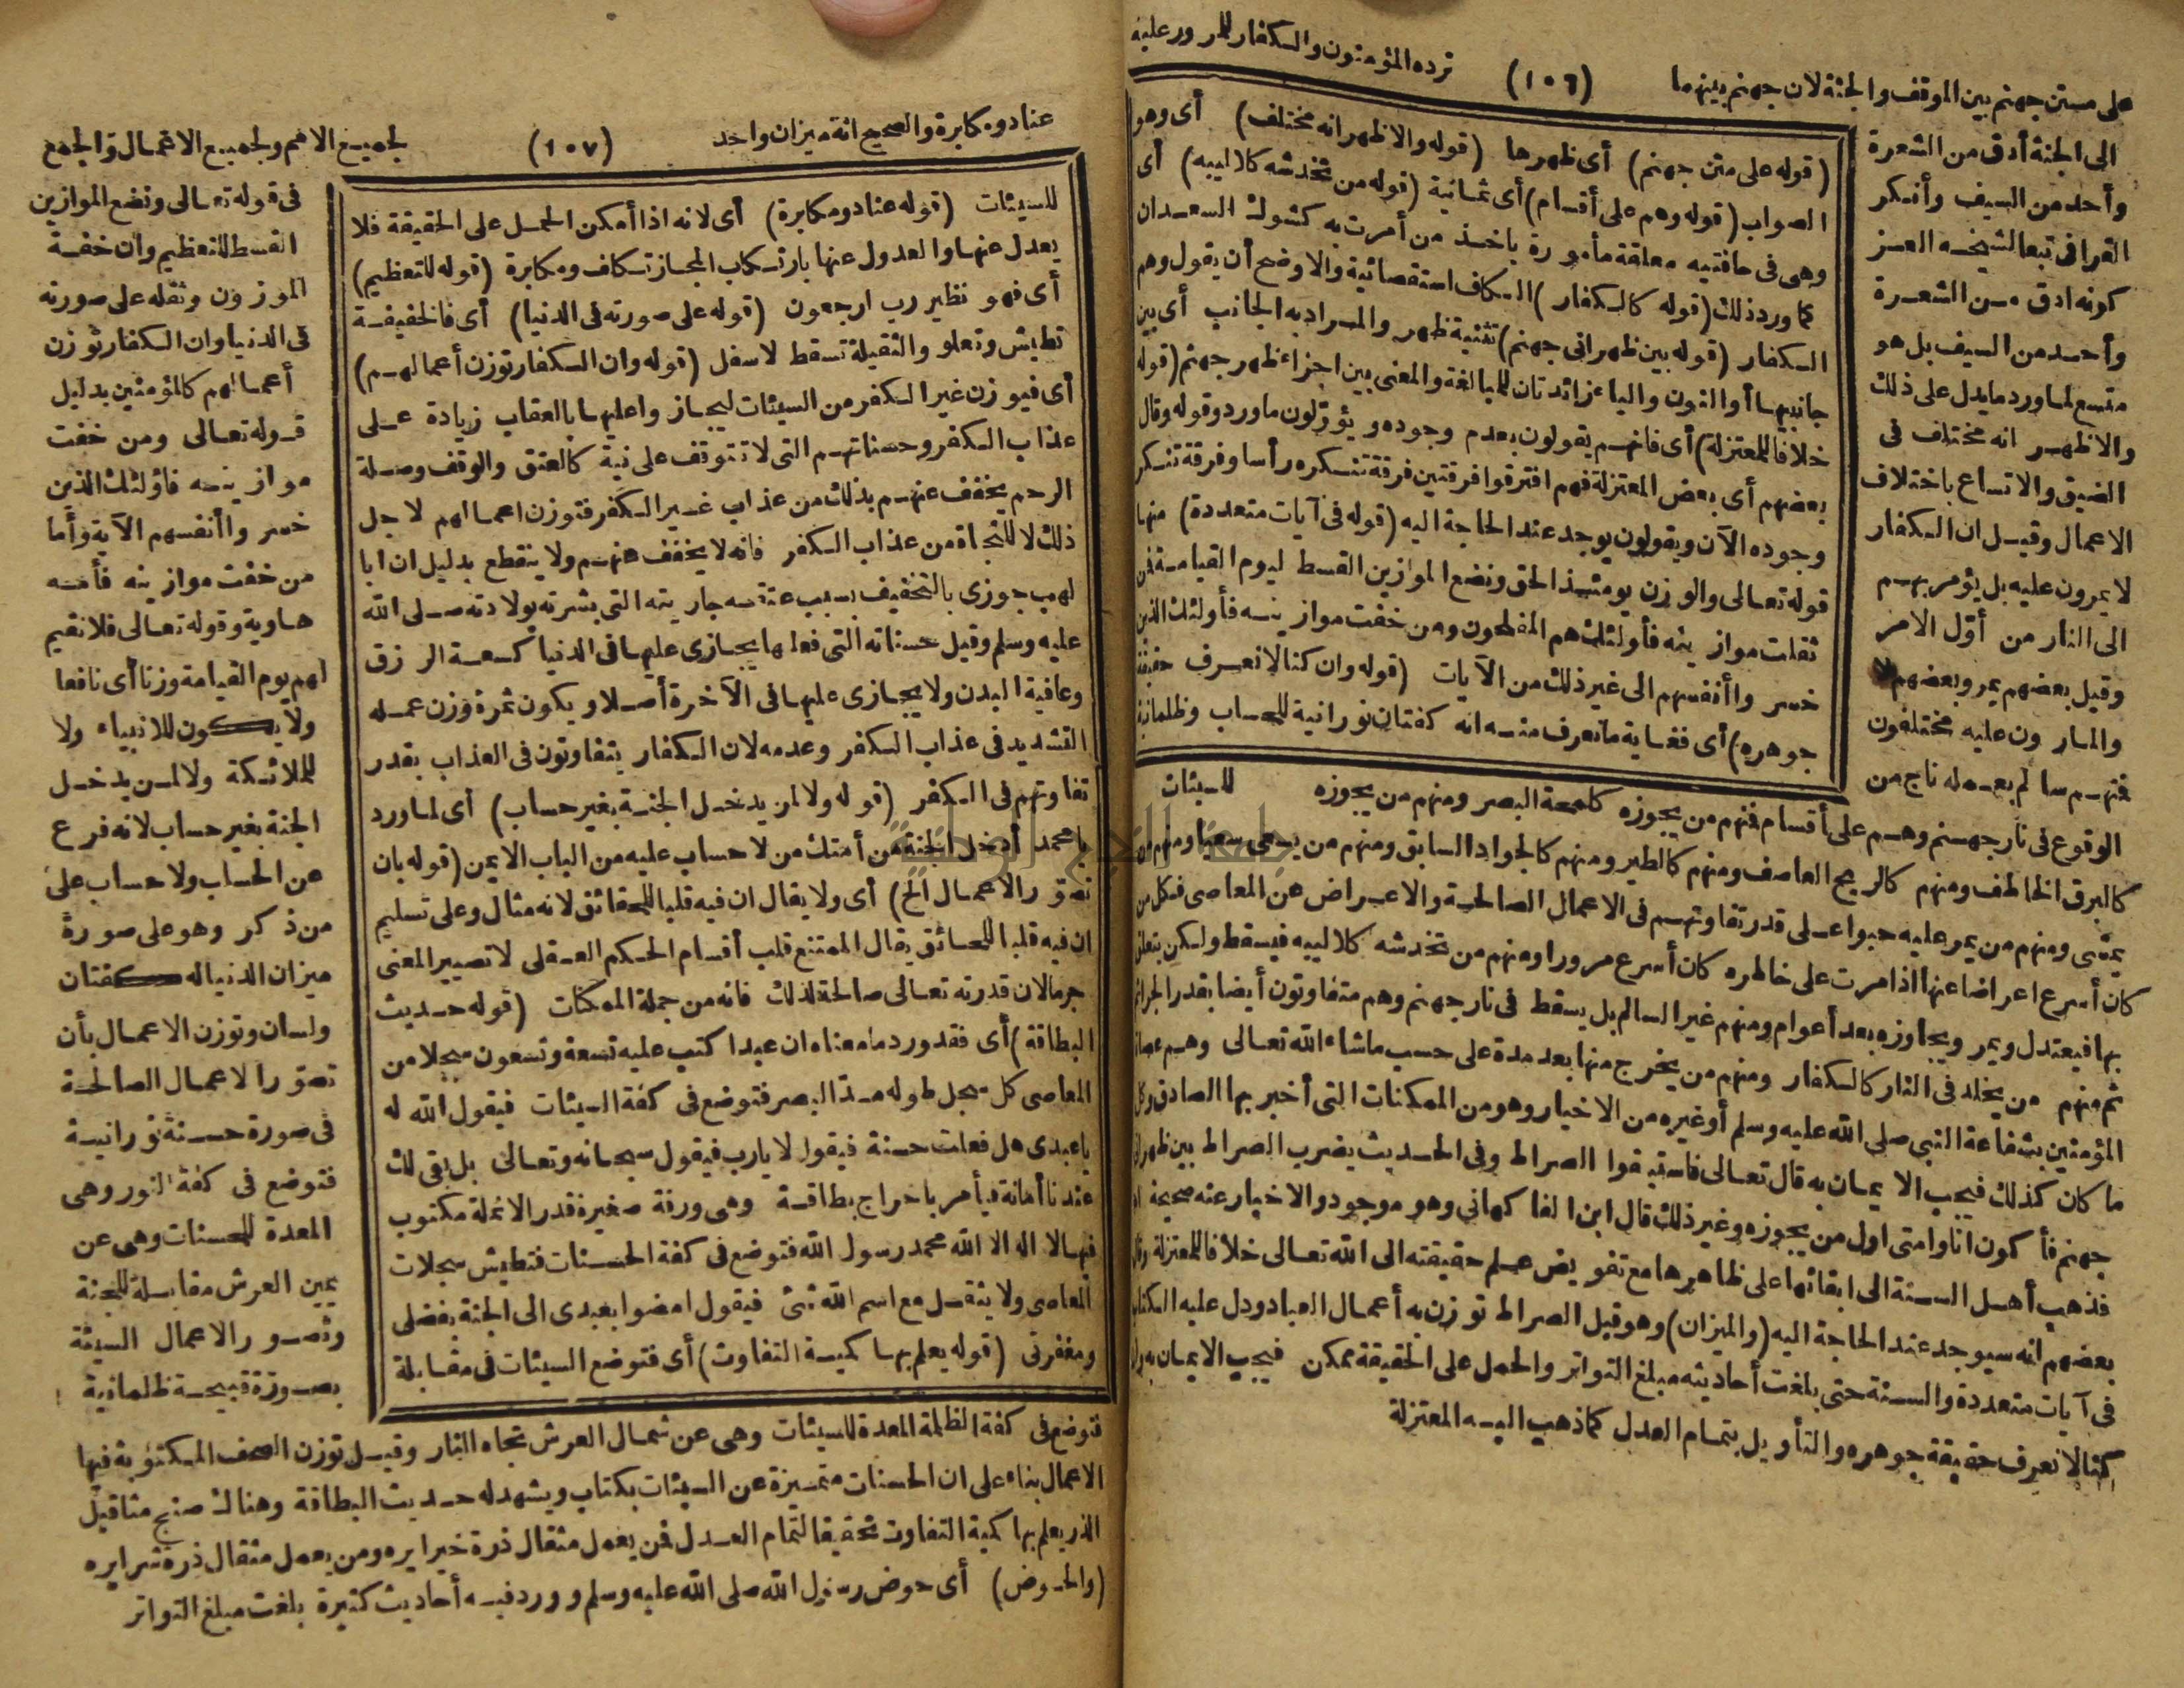 على متن جهنم بين الموقف والجنة لان جهنم بينهما (١٠٦) ترده المؤمنون والكفار للمرور عليه
الى الجنة أدق من الشعرة
وأحد من السيف وأنكر
القرافى تبعا لشيخه العز
كونه ادق من الشعرة
وأحد من السيف بل هو
متسع لما ورد ما يدل على ذلك
والاظهر انه مختلف فى
الضيق والاتساع باختلاف
الاعمال وقيل ان الكفار
لا يمرون عليه بل يؤمر بهم
الى النار من أول الامر
وقيل بعضهم يمر وبعضهم لا
والمارون عليه مختلفون
فمنهم سالم بعمله ناج من
الوقوع فى نار جهنم وهم على أقسام فمنهم من يجوزه كلمحة البصر ومنهم من يجوزه
كالبرق الخاطف ومنهم كالريح العاصف ومنهم كالطير ومنهم كالجواد السابق ومنهم من يسعى سعيا ومنهم من
يمشى ومنهم من يمر عليه حبوا على قدر تفاوتهم فى الاعمال الصالحة والاعراض عن المعاصى فكل من
كان أسرع اعراضا عنها اذا مرت على خاطره كان أسرع مرورا ومنهم من تخدشه كلاليبه فيسقط ولكن يتعلق
بها فيعتدل ويمر ويجاوزه بعد أعوام ومنهم غير السالم بل يسقط فى نار جهنم وهم متفاوتون أيضا بقدر الجرائم
ثم منهم من يخلد فى النار كالكفار ومنهم من يخرج منها بعد مدة على حسب ما شاء الله تعالى وهم عصاة
المؤمنين بشفاعة النبى صلى الله عليه وسلم أو غيره من الاخيار وهو من الممكنات التى أخبر بها الصادق وكل
ما كان كذلك فيجب الايمان به قال تعالى فاستبقوا الصراط وفى الحديث يضرب الصراط بين ظهرانى
جهنم فأكون انا وامتى اول من يجوزه وغير ذلك قال ابن الفاكهانى وهو موجود والاخبار عنه صحيحة
فذهب أهل السنة الى ابقائها على ظاهرها مع تفويض علم حقيقته الى الله تعالى خلافا للمعتزلة وقال
بعضهم انه سيوجد عند الحاجة اليه (والميزان) وهو قبل الصراط توزن به أعمال العباد ودل عليه الكتاب
فى آيات متعددة والسنة حتى بلغت أحاديثه مبلغ التواتر والحمل على الحقيقة ممكن فيجب الايمان به وان
كنا لا نعرف حقيقة جوهره والتأويل بتمام العدل كما ذهب اليه المعتزلة
(قوله على متن جهنم) أى ظهرها (قوله والاظهر انه مختلف) أى وهو
الصواب (قوله وهم على أقسام) أى ثمانية (قوله من تخدشه كلاليبه) أى
وهى فى حافتيه معلقة مأمورة باخذ من أمرت به كشوك السعدان
كما ورد ذلك (قوله كالكفار) الكاف استقصائية والاوضح أن يقول وهم
الكفار (قوله بين ظهرانى جهنم) تثنية ظهر والمراد به الجانب أى بين
جانبيها أو النون والياء زائدتان للمبالغة والمعنى بين اجزاء ظهر جهنم (قوله
خلافا للمعتزلة) أى فانهم يقولون بعدم وجوده ويؤولون ما ورد وقوله وقال
بعضهم أى بعض المعتزلة فهم افترقوا فرقتين فرقة تنكره رأسا وفرقة تنكر
وجوده الآن ويقولون يوجد عند الحاجة اليه (قوله فى آيات متعددة) منها
قوله تعالى والوزن يومئذ الحق ونضع الموازين القسط ليوم القيامة فمن
ثقلت موازينه فأولئك هم المفلحون ومن خفت موازينه فأولئك الذين
خسروا أنفسهم الى غير ذلك من الآيات (قوله وان كنا لا نعرف حقيقة
جوهره) أى فغاية ما نعرف منه انه كفتان نورانية للحساب وظلمانية
للسيئات
عناد ومكابرة والصحيح انه ميزان واحد (١٠٧) لجميع الامم ولجميع الاعمال والجمع
للسيئات (قوله عناد ومكابرة) أى لانه اذا أمكن الحمل على الحقيقة فلا
يعدل عنها والعدول عنها بارتكاب المجاز تكاف ومكابرة (قوله للتعظيم)
أى فهو نظير رب ارجعون (قوله على صورته فى الدنيا) أى فالخفيفة
تطيش وتعلو والثقيلة تسقط لاسفل (قوله وان الكفار توزن أعمالهم)
أى فيوزن غير الكفر من السيئات ليجازوا عليها بالعقاب زيادة على
عذاب الكفر وحسناتهم التى لا تتوقف على نية كالعتق والوقف وصلة
الرحم يخفف عنهم بذلك من عذاب غير الكفر فتوزن اعمالهم لاجل
ذلك لا للنجاة من عذاب الكفر فانه لا يخفف عنهم ولا ينقطع بدليل ان ابا
لهب جوزى بالتخفيف بسبب عتقه جاريته التى بشرته بولادته صلى الله
عليه وسلم وقيل حسناته التى فعلها يجازى عليها فى الدنيا كسعة الرزق
وعافية البدن ولا يجازى عليها فى الآخرة أصلا ويكون ثمرة وزن عمله
التشديد فى عذاب الكفر وعدمه لان الكفار يتفاوتون فى العذاب بقدر
تفاوتهم فى الكفر (قوله ولا لمن يدخل الجنة بغير حساب) أى لما ورد
يا محمد أدخل الجنة من أمتك من لا حساب عليه من الباب الايمن (قوله بان
تصور الاعمال الخ) أى ولا يقال ان فيه قلبا للحقائق لانه مثال وعلى تسليم
ان فيه قلبا للحقائق يقال الممتنع قلب أقسام الحكم العقلى لا تصيير المعنى
جرما لان قدرته تعالى صالحة لذلك فانه من جملة الممكنات (قوله حديث
البطاقة) أى فقد ورد ما معناه ان عبدا كتب عليه تسعة وتسعون سجلا من
المعاصى كل سجل طوله مد البصر فتوضع فى كفة السيئات فيقول الله له
يا عبدى هل فعلت حسنة فيقول لا يارب فيقول سبحانه وتعالى بل بقى لك
عندنا أمانة فيأمر باخراج بطاقة وهى ورقة صغيرة قدر الانملة مكتوب
فيها لا اله الا الله محمد رسول الله فتوضع فى كفة الحسنات فتطيش سجلات
المعاصى ولا يثقل مع اسم الله شئ فيقول امضوا بعبدى الى الجنة بفضلى
ومغفرتى (قوله يعلم بها كمية التفاوت) أى فتوضع السيئات فى مقابلة
فى قوله تعالى ونضع الموازين
القسط للتعظيم وان خفة
الموزون وثقله على صورته
فى الدنيا وان الكفار توزن
أعمالهم كالمؤمنين بدليل
قوله تعالى ومن خفت
موازينه فاولئك الذين
خسروا أنفسهم الآية وأما
من خفت موازينه فأمه
هاوية وقوله تعالى فلا نقيم
لهم يوم القيامة وزنا أى نافعا
ولا يكون للانبياء ولا
للملائكة ولا لمن يدخل
الجنة بغير حساب لانه فرع
عن الحساب ولا حساب على
من ذكر وهو على صورة
ميزان الدنيا له كفتان
ولسان وتوزن الاعمال بأن
تصور الاعمال الصالحة
فى صورة حسنة نورانية
فتوضع فى كفة النور وهى
المعدة للحسنات وهى عن
يمين العرش مقابلة للجنة
وتصور الاعمال السيئة
بصورة قبيحة ظلمانية
فتوضع فى كفة الظلمة المعدة للسيئات وهى عن شمال العرش تجاه النار وقيل توزن الصحف المكتوبة فيها
الاعمال بناء على ان الحسنات متميزة عن السيئات بكتاب ويشهد له حديث البطاقة وهناك صنج مثاقيل
الذر يعلم بها كمية التفاوت تحقيقا لتمام العدل فمن يعمل مثقال ذرة خيرا يره ومن يعمل مثقال ذرة شرا يره
(والحوض) أى حوض رسول الله صلى الله عليه وسلم وورد فيه أحاديث كثيرة بلغت مبلغ التواتر
جامعة النجاح الوطنية